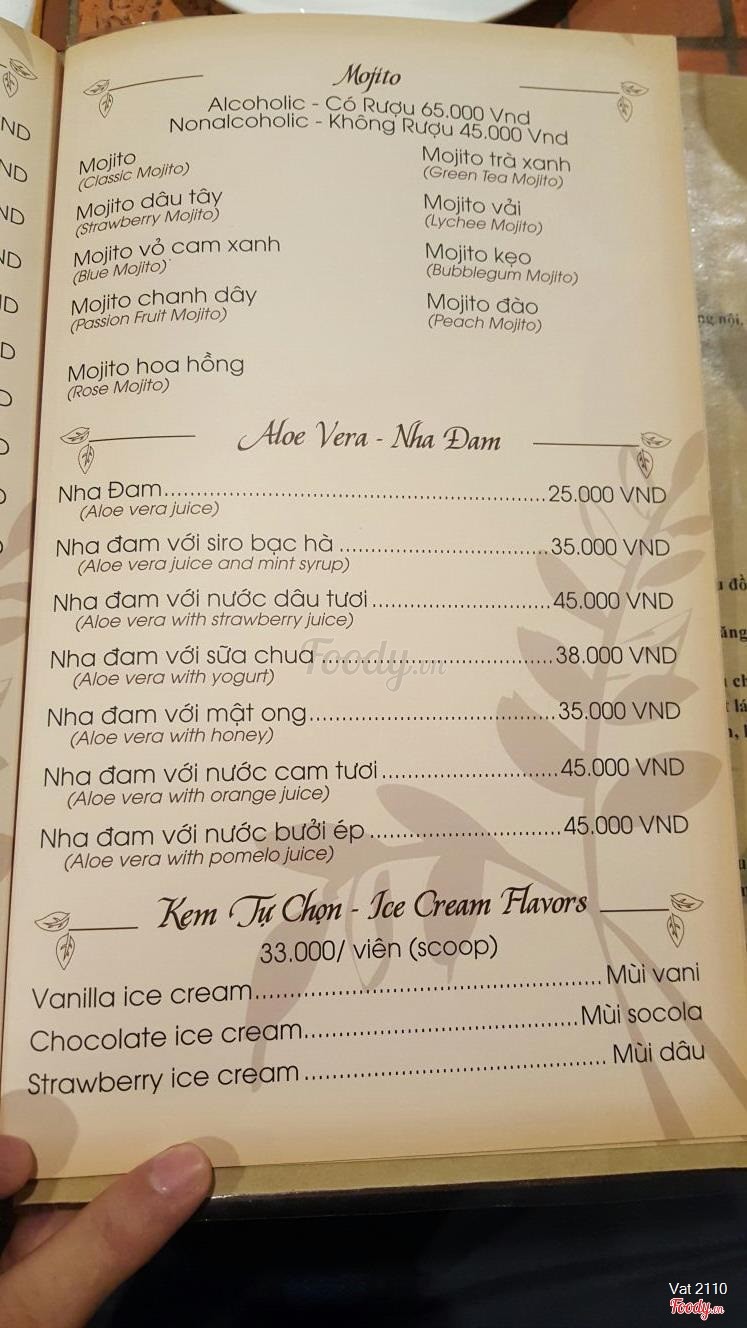 Mojito
Alcoholic - Có Rượu 65.000 Vnd
Nonalcoholic - Không Rượu 45.000 Vnd
Mojito
(Classic Mojito)
Mojito dâu tây
(Strawberry Mojito)
Mojito vỏ cam xanh
(Blue Mojito)
Mojito chanh dây
(Passion Fruit Mojito)
Mojito hoa hồng
(Rose Mojito)
Mojito trà xanh
(Green Tea Mojito)
Mojito vải
(Lychee Mojito)
Mojito kẹo
(Bubblegum Mojito)
Mojito đào
(Peach Mojito)
Aloe Vera - Nha Đam
Nha Đam 25.000 VND
(Aloe vera juice)
Nha đam với siro bạc hà 35.000 VND
(Aloe vera juice and mint syrup)
Nha đam với nước dâu tươi 45.000 VND
(Aloe vera with strawberry juice)
Nha đam với sữa chua 38.000 VND
(Aloe vera with yogurt)
Nha đam với mật ong 35.000 VND
(Aloe vera with honey)
Nha đam với nước cam tươi 45.000 VND
(Aloe vera with orange juice)
Nha đam với nước bưởi ép 45.000 VND
(Aloe vera with pomelo juice)
Kem Tự Chọn - Ice Cream Flavors
33.000/ viên (scoop)
Vanilla ice cream Mùi vani
Chocolate ice cream Mùi socola
Strawberry ice cream Mùi dâu
Foody.vn
Vat 2110
Foody.vn